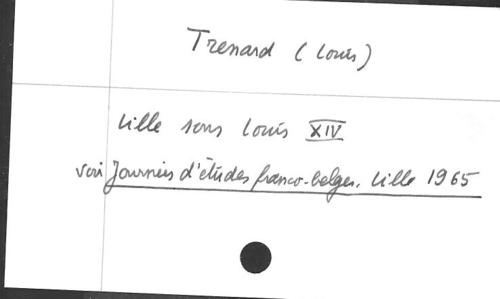 Trenard (Louis)
Lille sous Louis XIV
voir Journées d'études franco-belges. Lille 1965